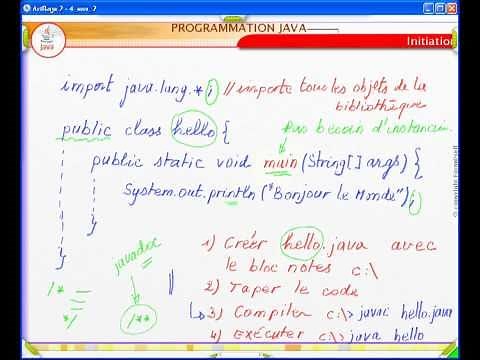 ArtRage 2 - 4 sur 7
PROGRAMMATION JAVA
Java
Initiation
import java.lang.*; // importe tous les objets de la
bibliothèque
public class hello {
Pas besoin d'instancier.
public static void main (String[] args) {
System.out.println ("Bonjour le Monde");
}
}
javadoc
/*
*/
/**
1) Créer hello.java avec
le bloc notes c:\
2) Taper le code
3) Compiler c:\> javac hello.java
4) Exécuter c:\> java hello